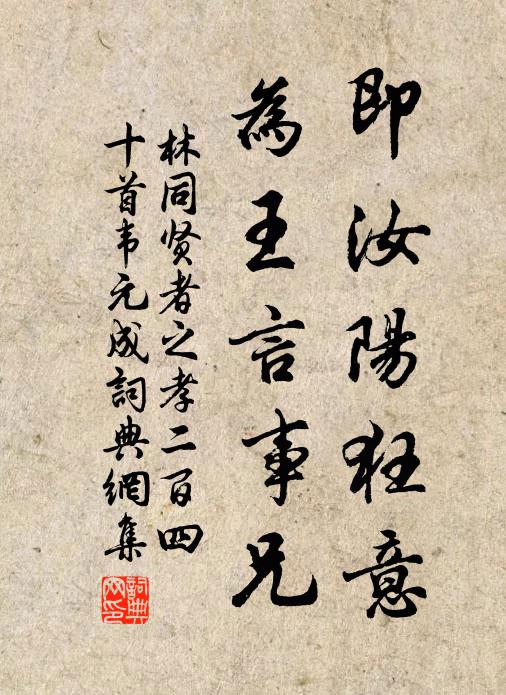 即汝陽狂意
為王言事兄
林同贤者之孝二百四
十首韦元成詞典網集
詞典网印